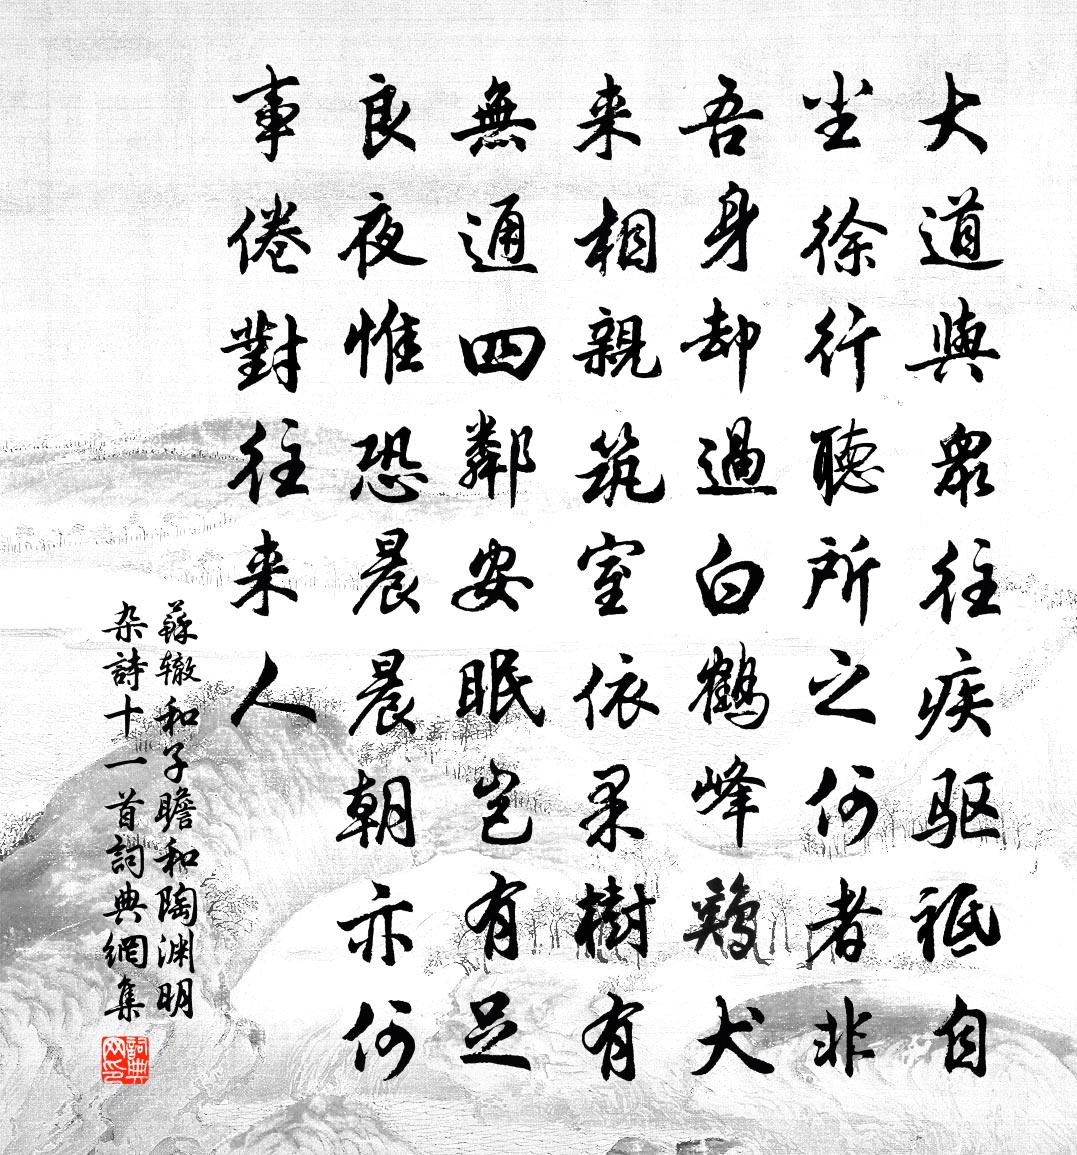 大道與衆往疾驱祗自
坐徐行聽所之何者非
吾身却過白鶴峰鷄犬
来相親筑室依柔樹有
無通四鄰安眠豈有足
良夜惟恐晨晨朝亦何
事倦對往来人
蘇辙和子瞻和陶渊明
杂詩十一首詞典網集
詞典
网印